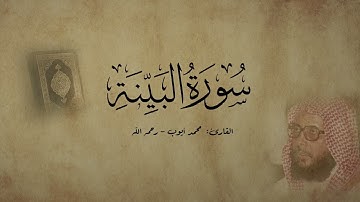 سُورَةُ البَيِّنَةِ
القارئ: محمد أيوب - رحمه الله